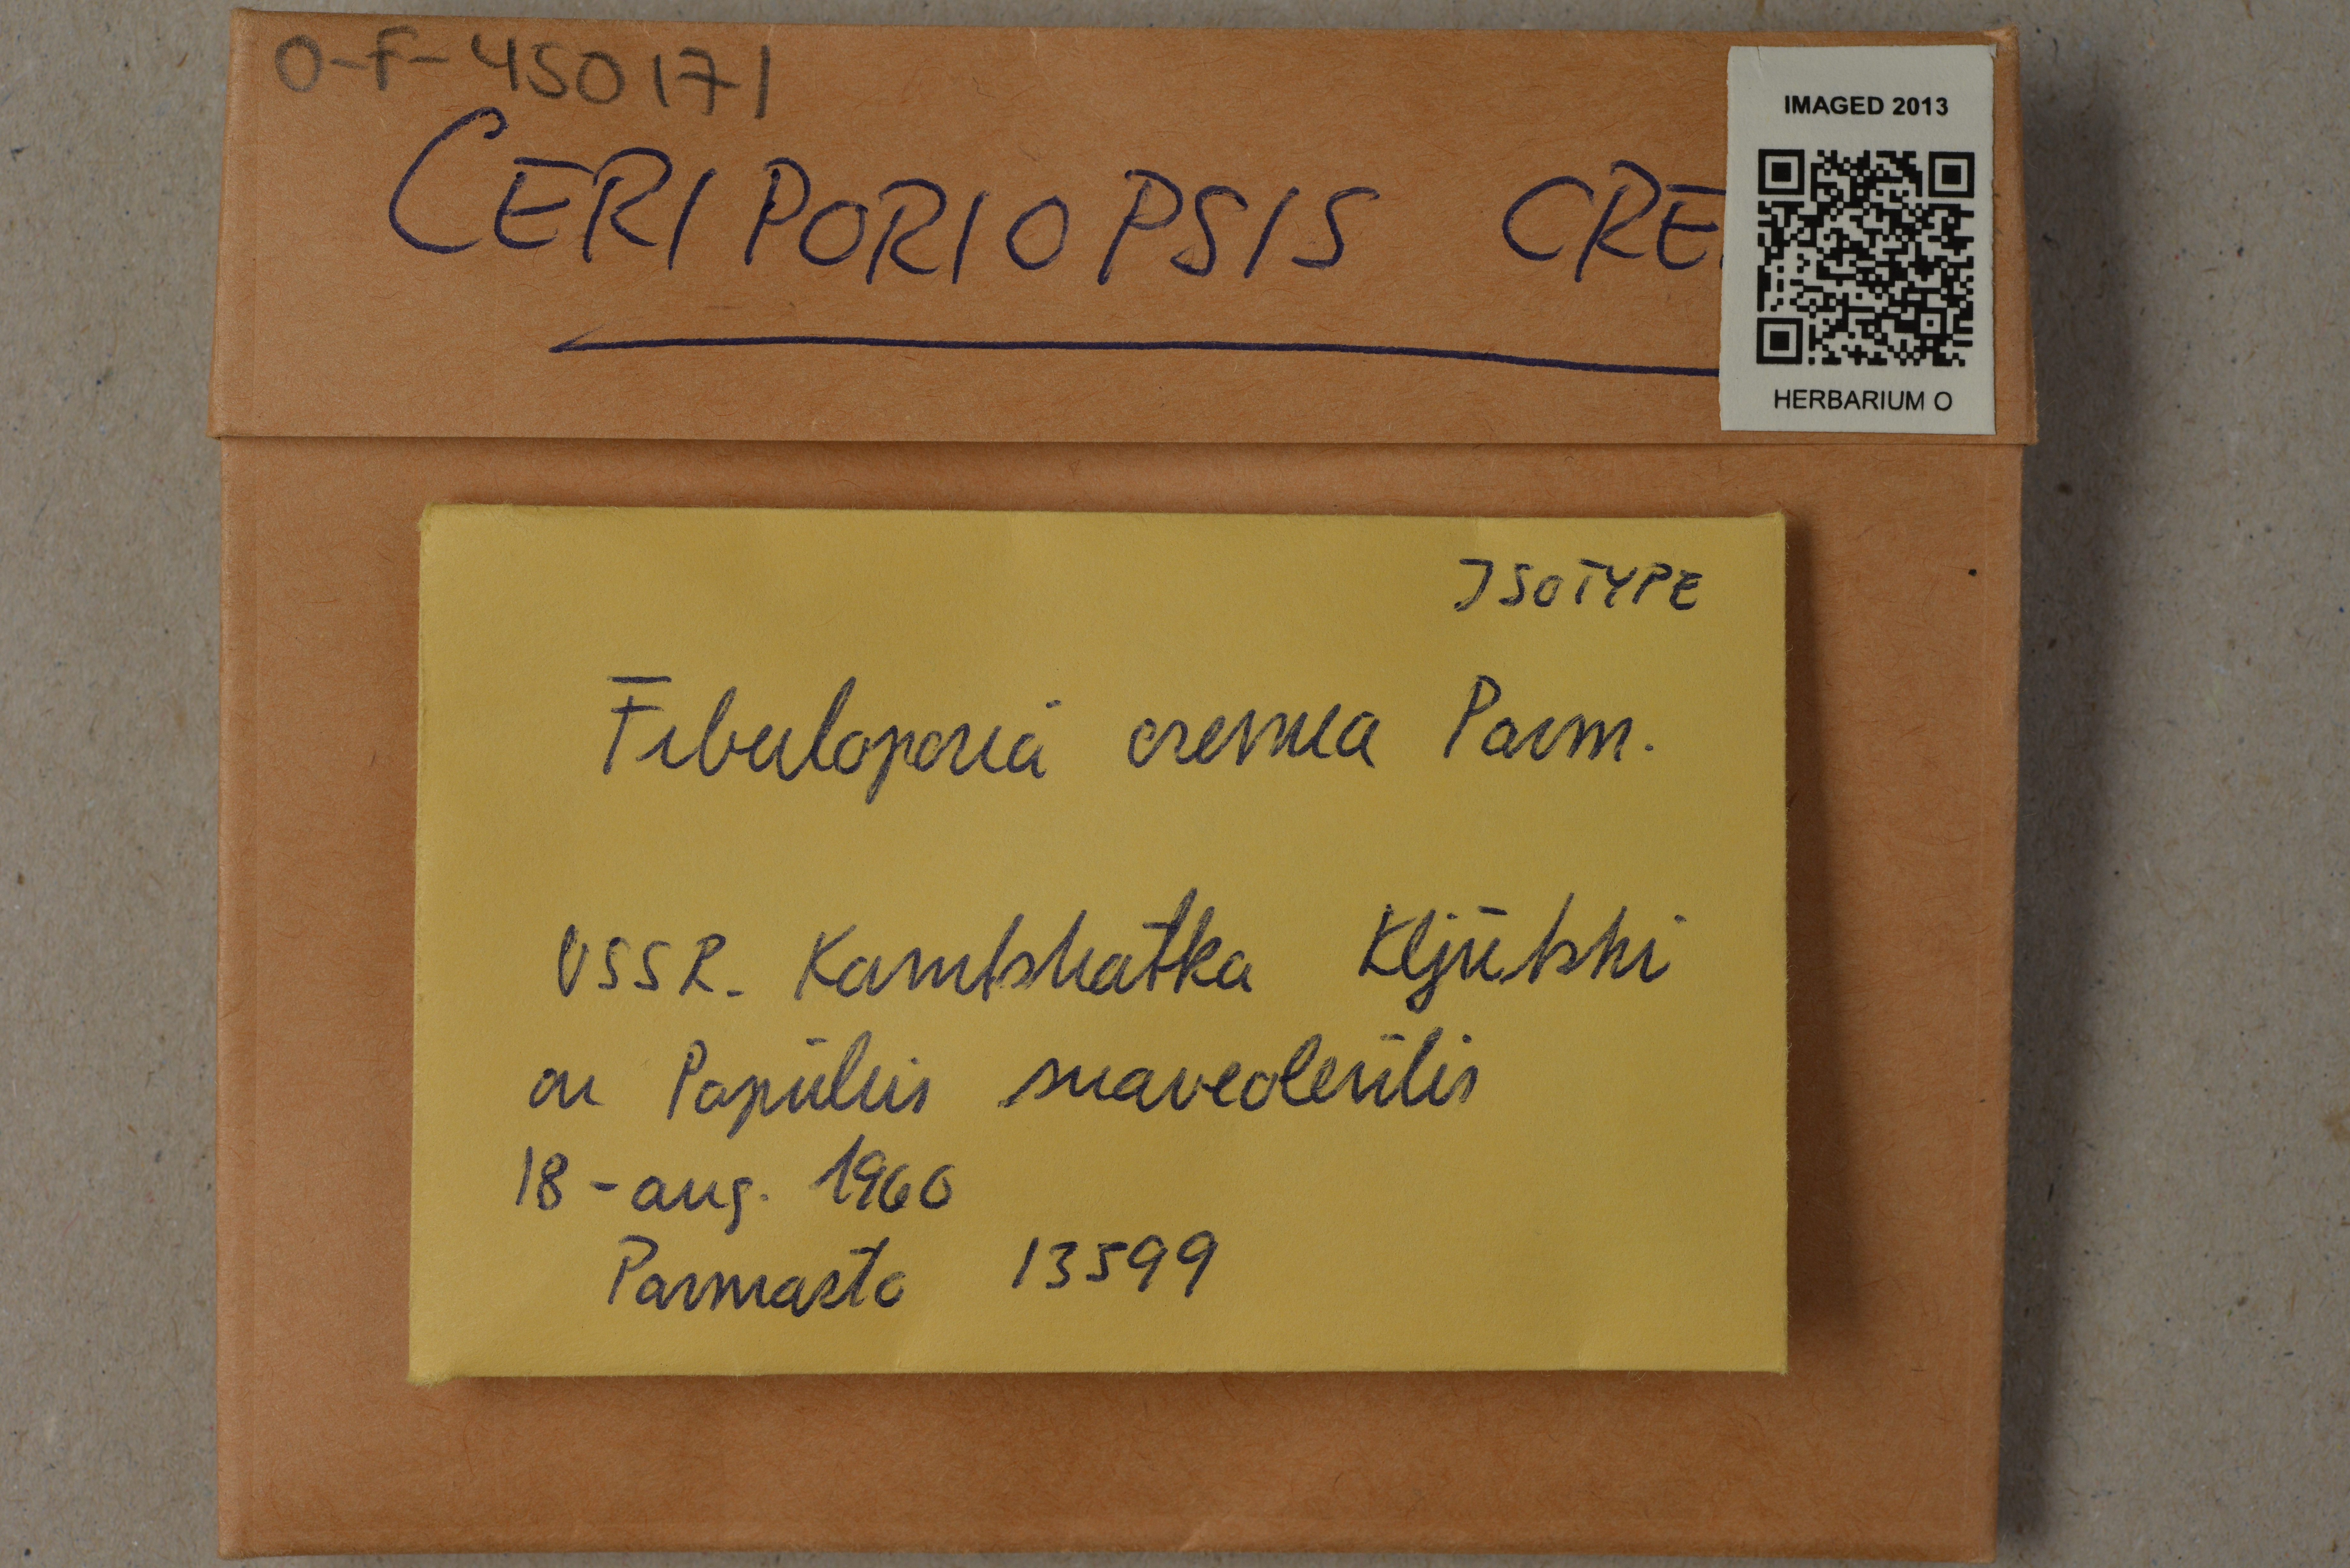 O-F-450171
CERIPORIOPSIS CRE
IMAGED 2013
HERBARIUM O
ISOTYPE
Fibuloporia cremea Parm.
USSR. Kamtshatka Kljutshi
on Populus suaveolentis
18-aug. 1960
Parmasto 13599